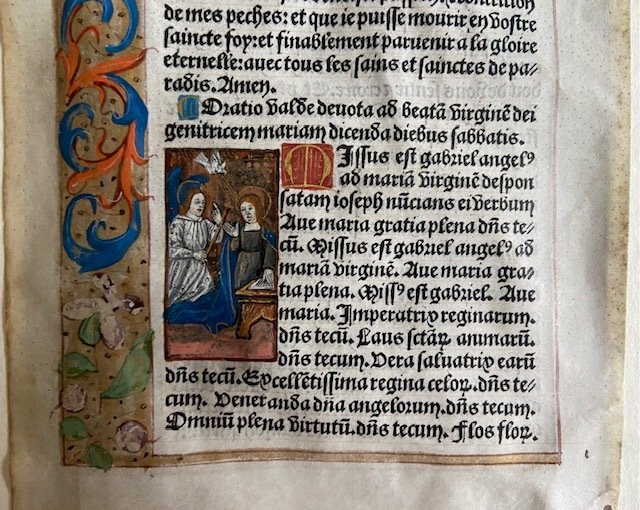 de mes peches: et que ie puisse mourir en vostre
saincte foy: et finablement paruenir a la gloire
eternelle: auec tous les sains et sainctes de pa-
radis. Amen.
Oratio valde deuota ad beatā virginē dei
genitricem mariam dicenda diebus sabbatis.
Missus est gabriel angelꝰ
ad mariā virginē despon
satam ioseph nūcians ei verbum
Aue maria gratia plena dn̄s te-
cū. Missus est gabriel angelꝰ ad
mariā virginē. Aue maria gra-
tia plena. Missꝰ est gabriel. Aue
maria. Imperatrix reginarum.
dn̄s tecū. Laus sctāꝝ animarū.
dn̄s tecum. Vera saluatrix earū
dn̄s tecū. Excellētissima regina celoꝝ. dn̄s te-
cum. Veneranda dn̄a angelorum. dn̄s tecum.
Omniū plena virtutū. dn̄s tecum. Flos floꝝ.